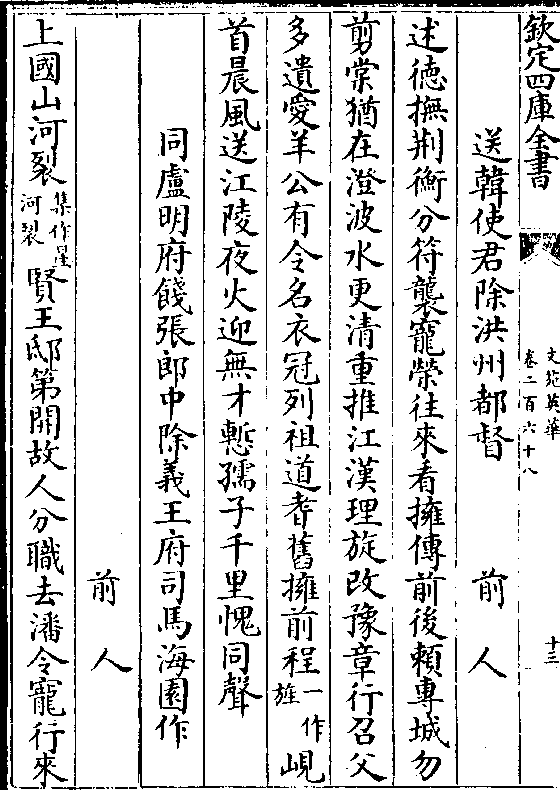 欽定四庫全書
文苑英華
卷二百六十八
十三
送韓使君除洪州都督 前人
述徳撫荆衡分符襲寵榮往來看擁傳前後賴專城勿
剪棠猶在澄波水更清重推江漢理旋改豫章行召父
多遺愛羊公有令名衣冠列祖道耆舊擁前程一作旌峴
首晨風送江陵夜火迎無才慙孺子千里愧同聲
同盧明府餞張郎中除義王府司馬海園作
前人
上國山河裂集作星河裂賢王邸第開故人分職去潘令寵行來